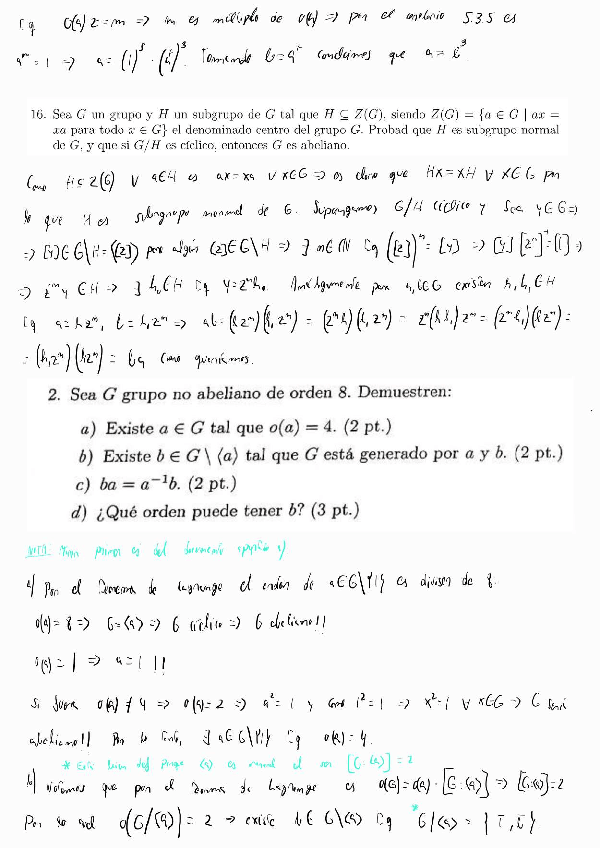 tq o(a) z = m => m es múltiplo de o(a) => por el 5.3.5 es
Tomando b = concluimos que a = b³.
16. Sea G un grupo y H un subgrupo de G tal que H ⊆ Z(G), siendo Z(G) = {a ∈ G | ax =
xa para todo x ∈ G} el denominado centro del grupo G. Probad que H es subgrupo normal
de G, y que si G/H es cíclico, entonces G es abeliano.
Como H ⊆ Z(G) ∀ a∈H es ax = xa ∀ x∈G => es claro que Hx = xH ∀ x∈G por
lo que H es subgrupo normal de G. Supongamos G/H cíclico y sea y∈G =>
=> [y] ∈ G\H = ⟨[z]⟩ para algún [z] ∈ G\H => ∃ n∈ℕ tq ([z])ⁿ = [y] =>
∈H => ∃ h₀∈H tq y = zⁿh₀. Análogamente para a, b∈G existen h, h₁∈H
tq a = hzⁿ, b = h₁zⁿ => ab = (hzⁿ)(h₁zⁿ) = (zⁿh)(h₁zⁿ) = zⁿ(hh₁)zⁿ = (zⁿh₁)(hzⁿ) =
= (h₁zⁿ)(hzⁿ) = ba como queríamos.
2. Sea G grupo no abeliano de orden 8. Demuestren:
a) Existe a ∈ G tal que o(a) = 4. (2 pt.)
b) Existe b ∈ G \ ⟨a⟩ tal que G está generado por a y b. (2 pt.)
c) ba = a⁻¹b. (2 pt.)
d) ¿Qué orden puede tener b? (3 pt.)
NOTA: es del documento
a) Por el Teorema de Lagrange el orden de a∈G\{1} es divisor de 8.
o(a) = 8 => G = ⟨a⟩ => G cíclico => G abeliano!!
o(a) = 1 => a = 1 !!
Si fuera o(a) ≠ 4 => o(a) = 2 => a² = 1 y como 1² = 1 => x² = 1 ∀ x∈G => G será
abeliano!! Por lo tanto, ∃ a∈G\{1} tq o(a) = 4.
* Está bien def porque ⟨a⟩ es normal al ser [G:⟨a⟩] = 2
b) que por el Teorema de Lagrange es o(G) = o(a) · [G:⟨a⟩] => [G:⟨a⟩] = 2
Por lo cual o(G/⟨a⟩) = 2 => existe b∈G\⟨a⟩ tq G/⟨a⟩ = {1̄, b̄}
*